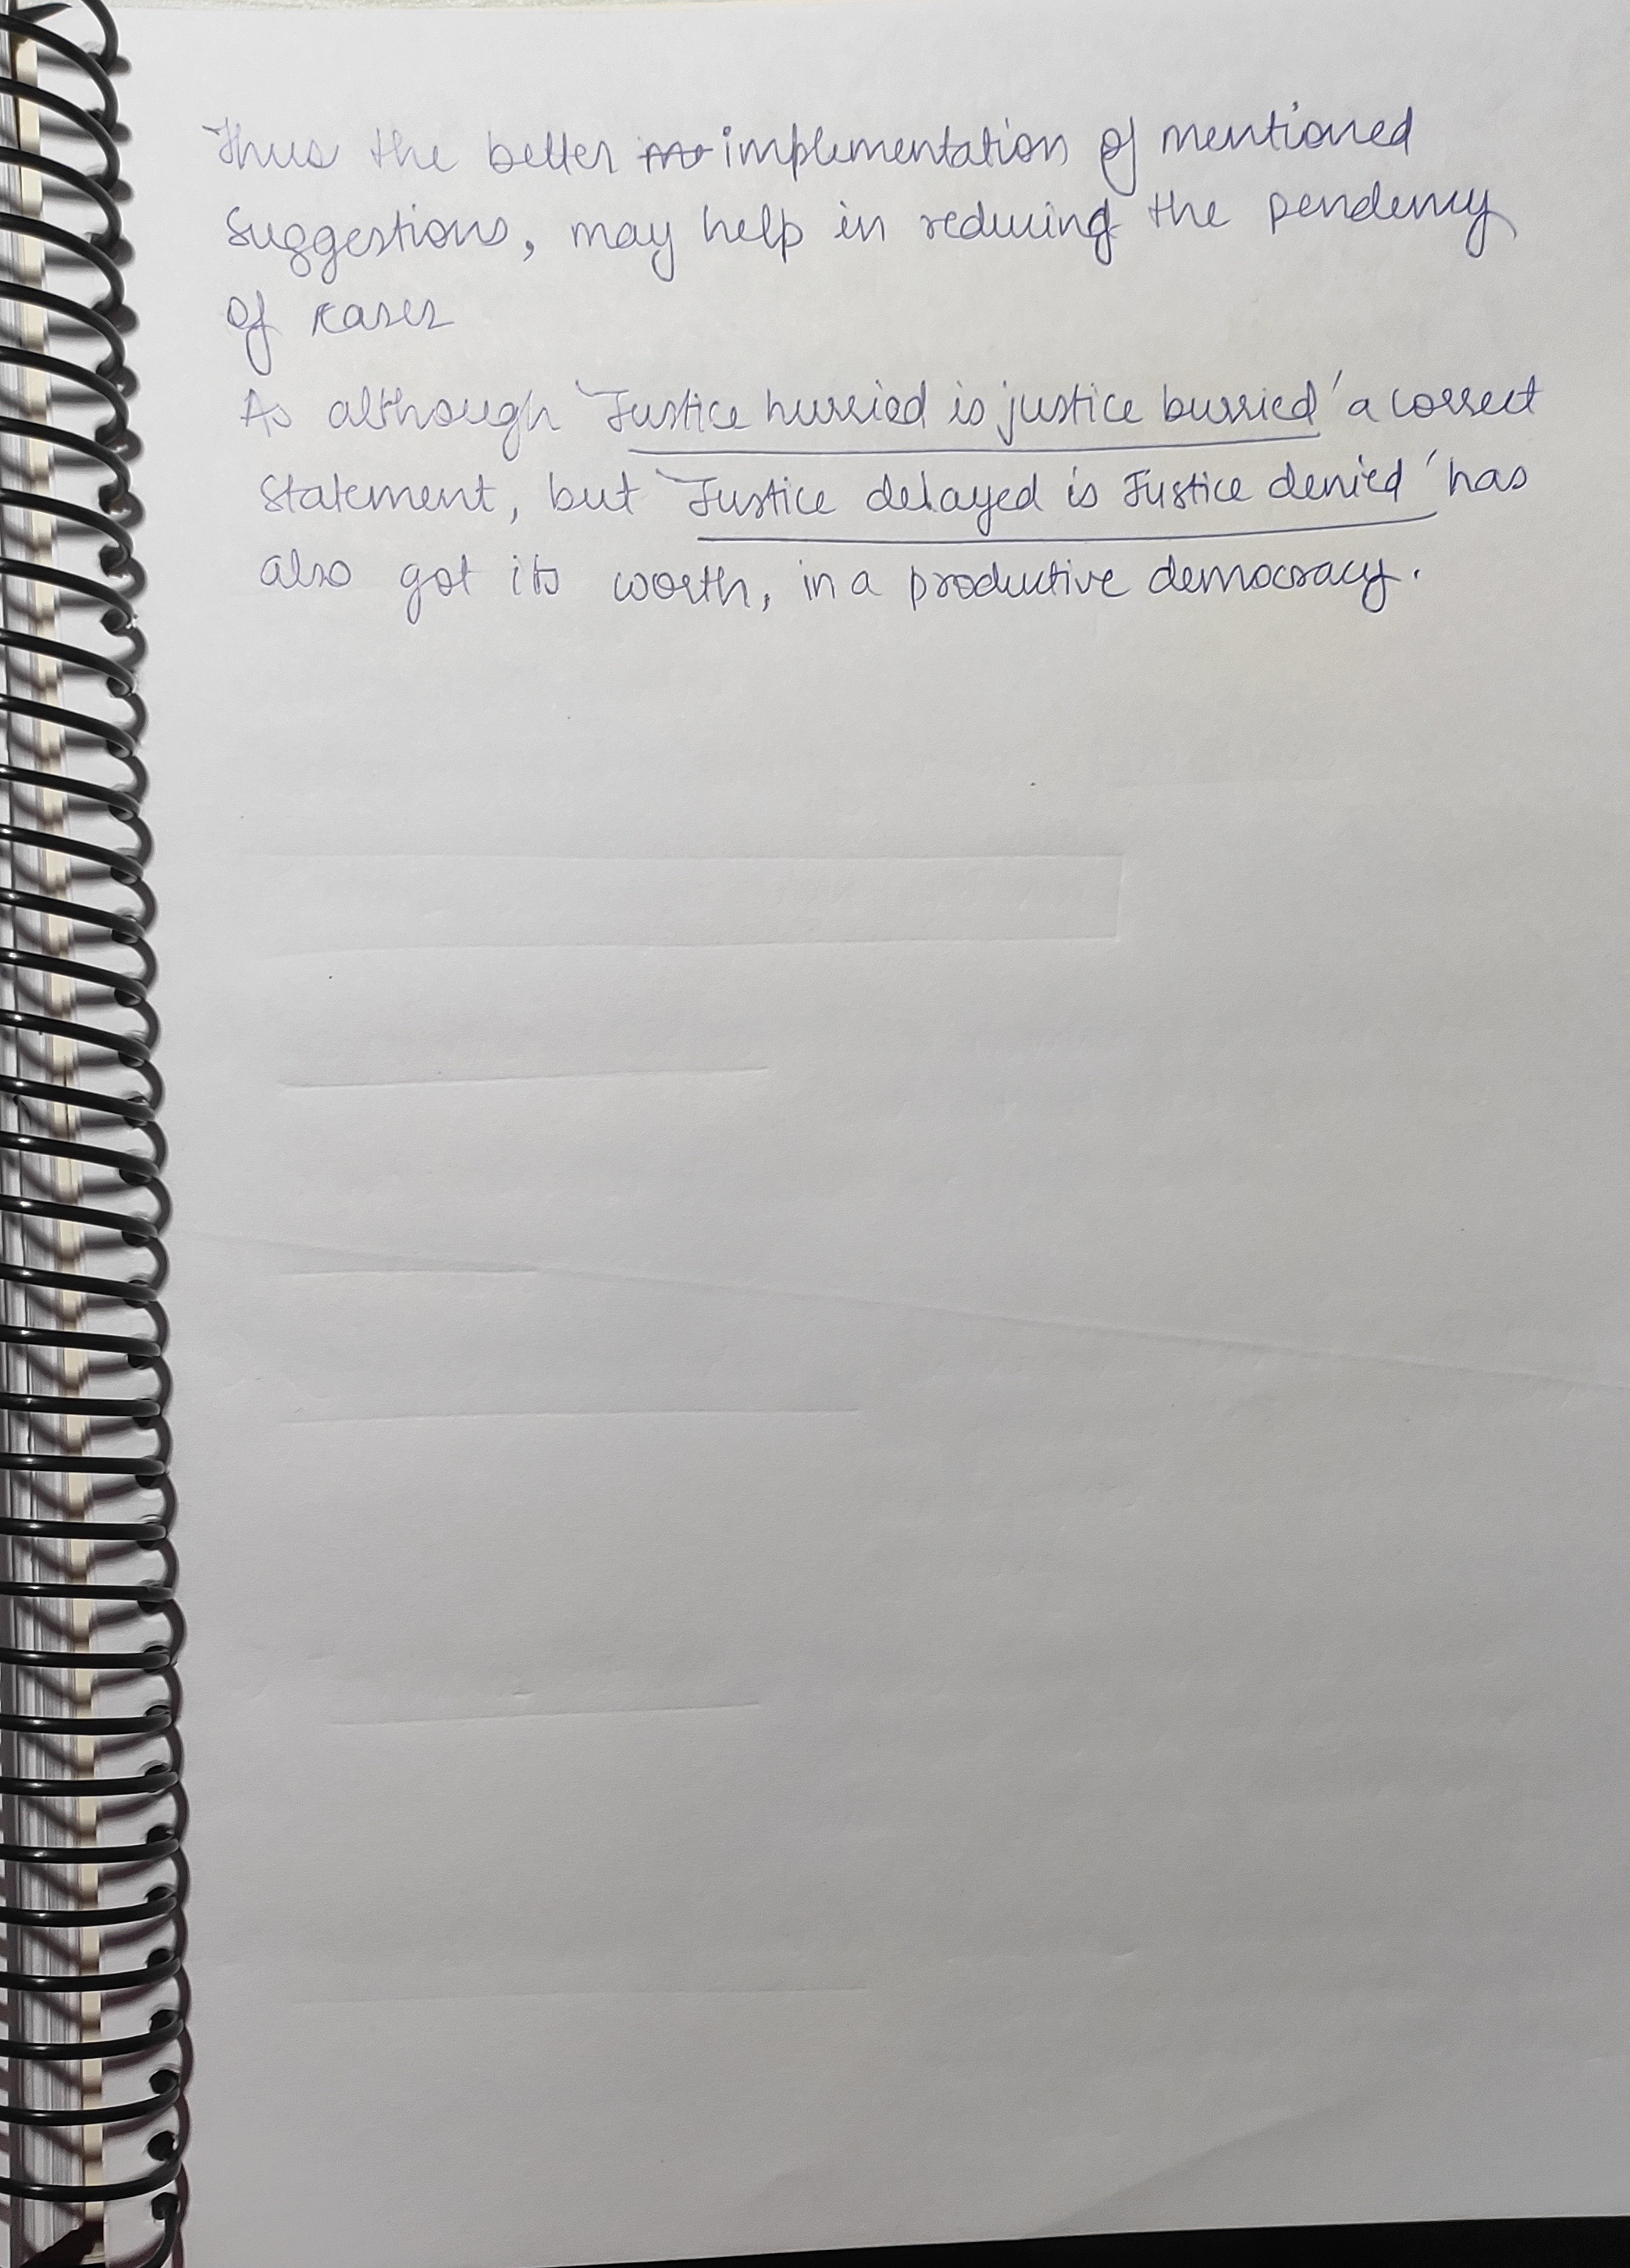 Thus the better implementation of mentioned
suggestions, may help in reducing the pendency
of cases
As although 'Justice hurried is justice burried' a correct
statement, but 'Justice delayed is Justice denied' has
also got its worth, in a productive democracy.